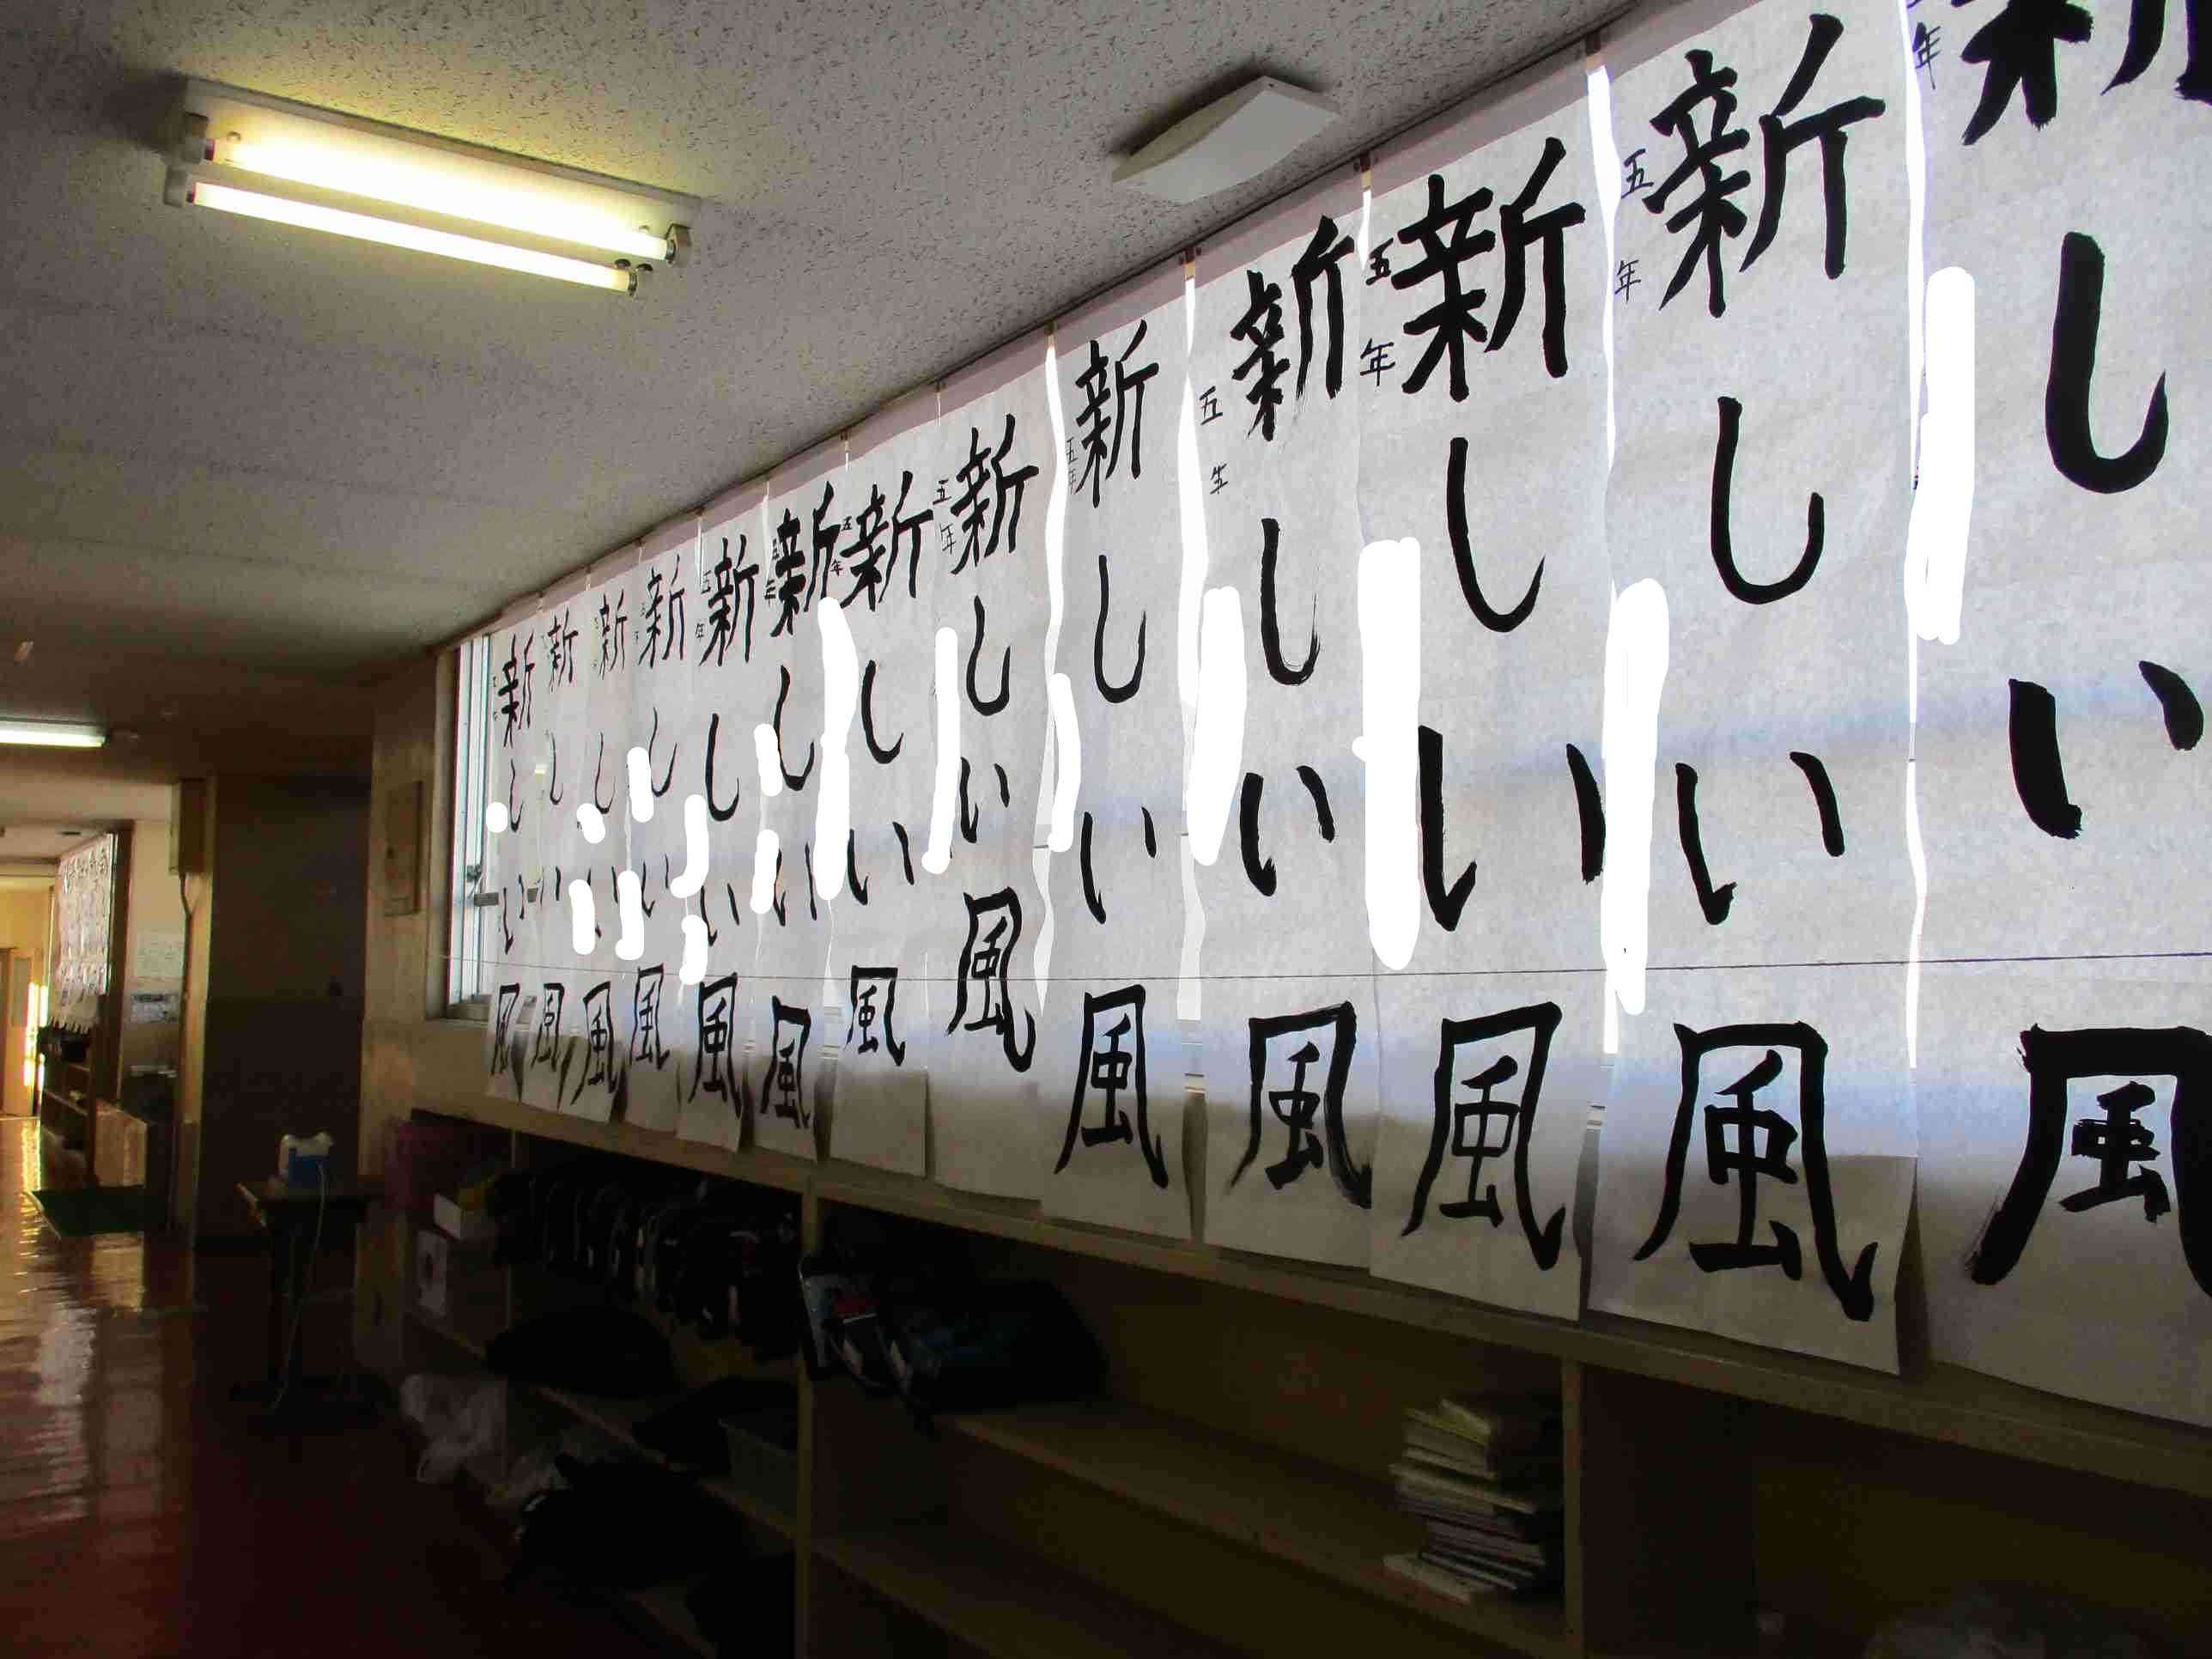 新しい風
年
新しい風
五年
新しい風
五年
新しい風
五年
新しい風
五年
新しい風
五年
新しい風
五年
新しい風
五年
新しい風
五年
新しい風
新しい風
新しい風
新しい風